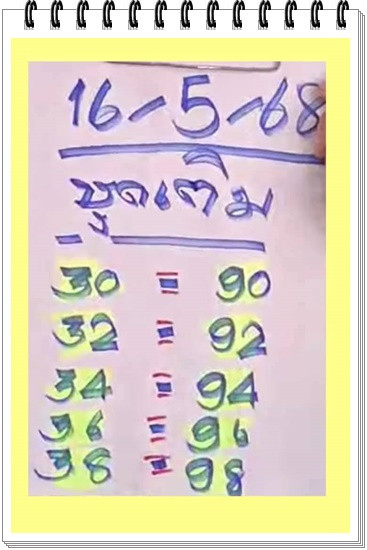 16-5-68
ชุดเติม
30 = 90
32 = 92
34 = 94
36 = 96
38 = 98